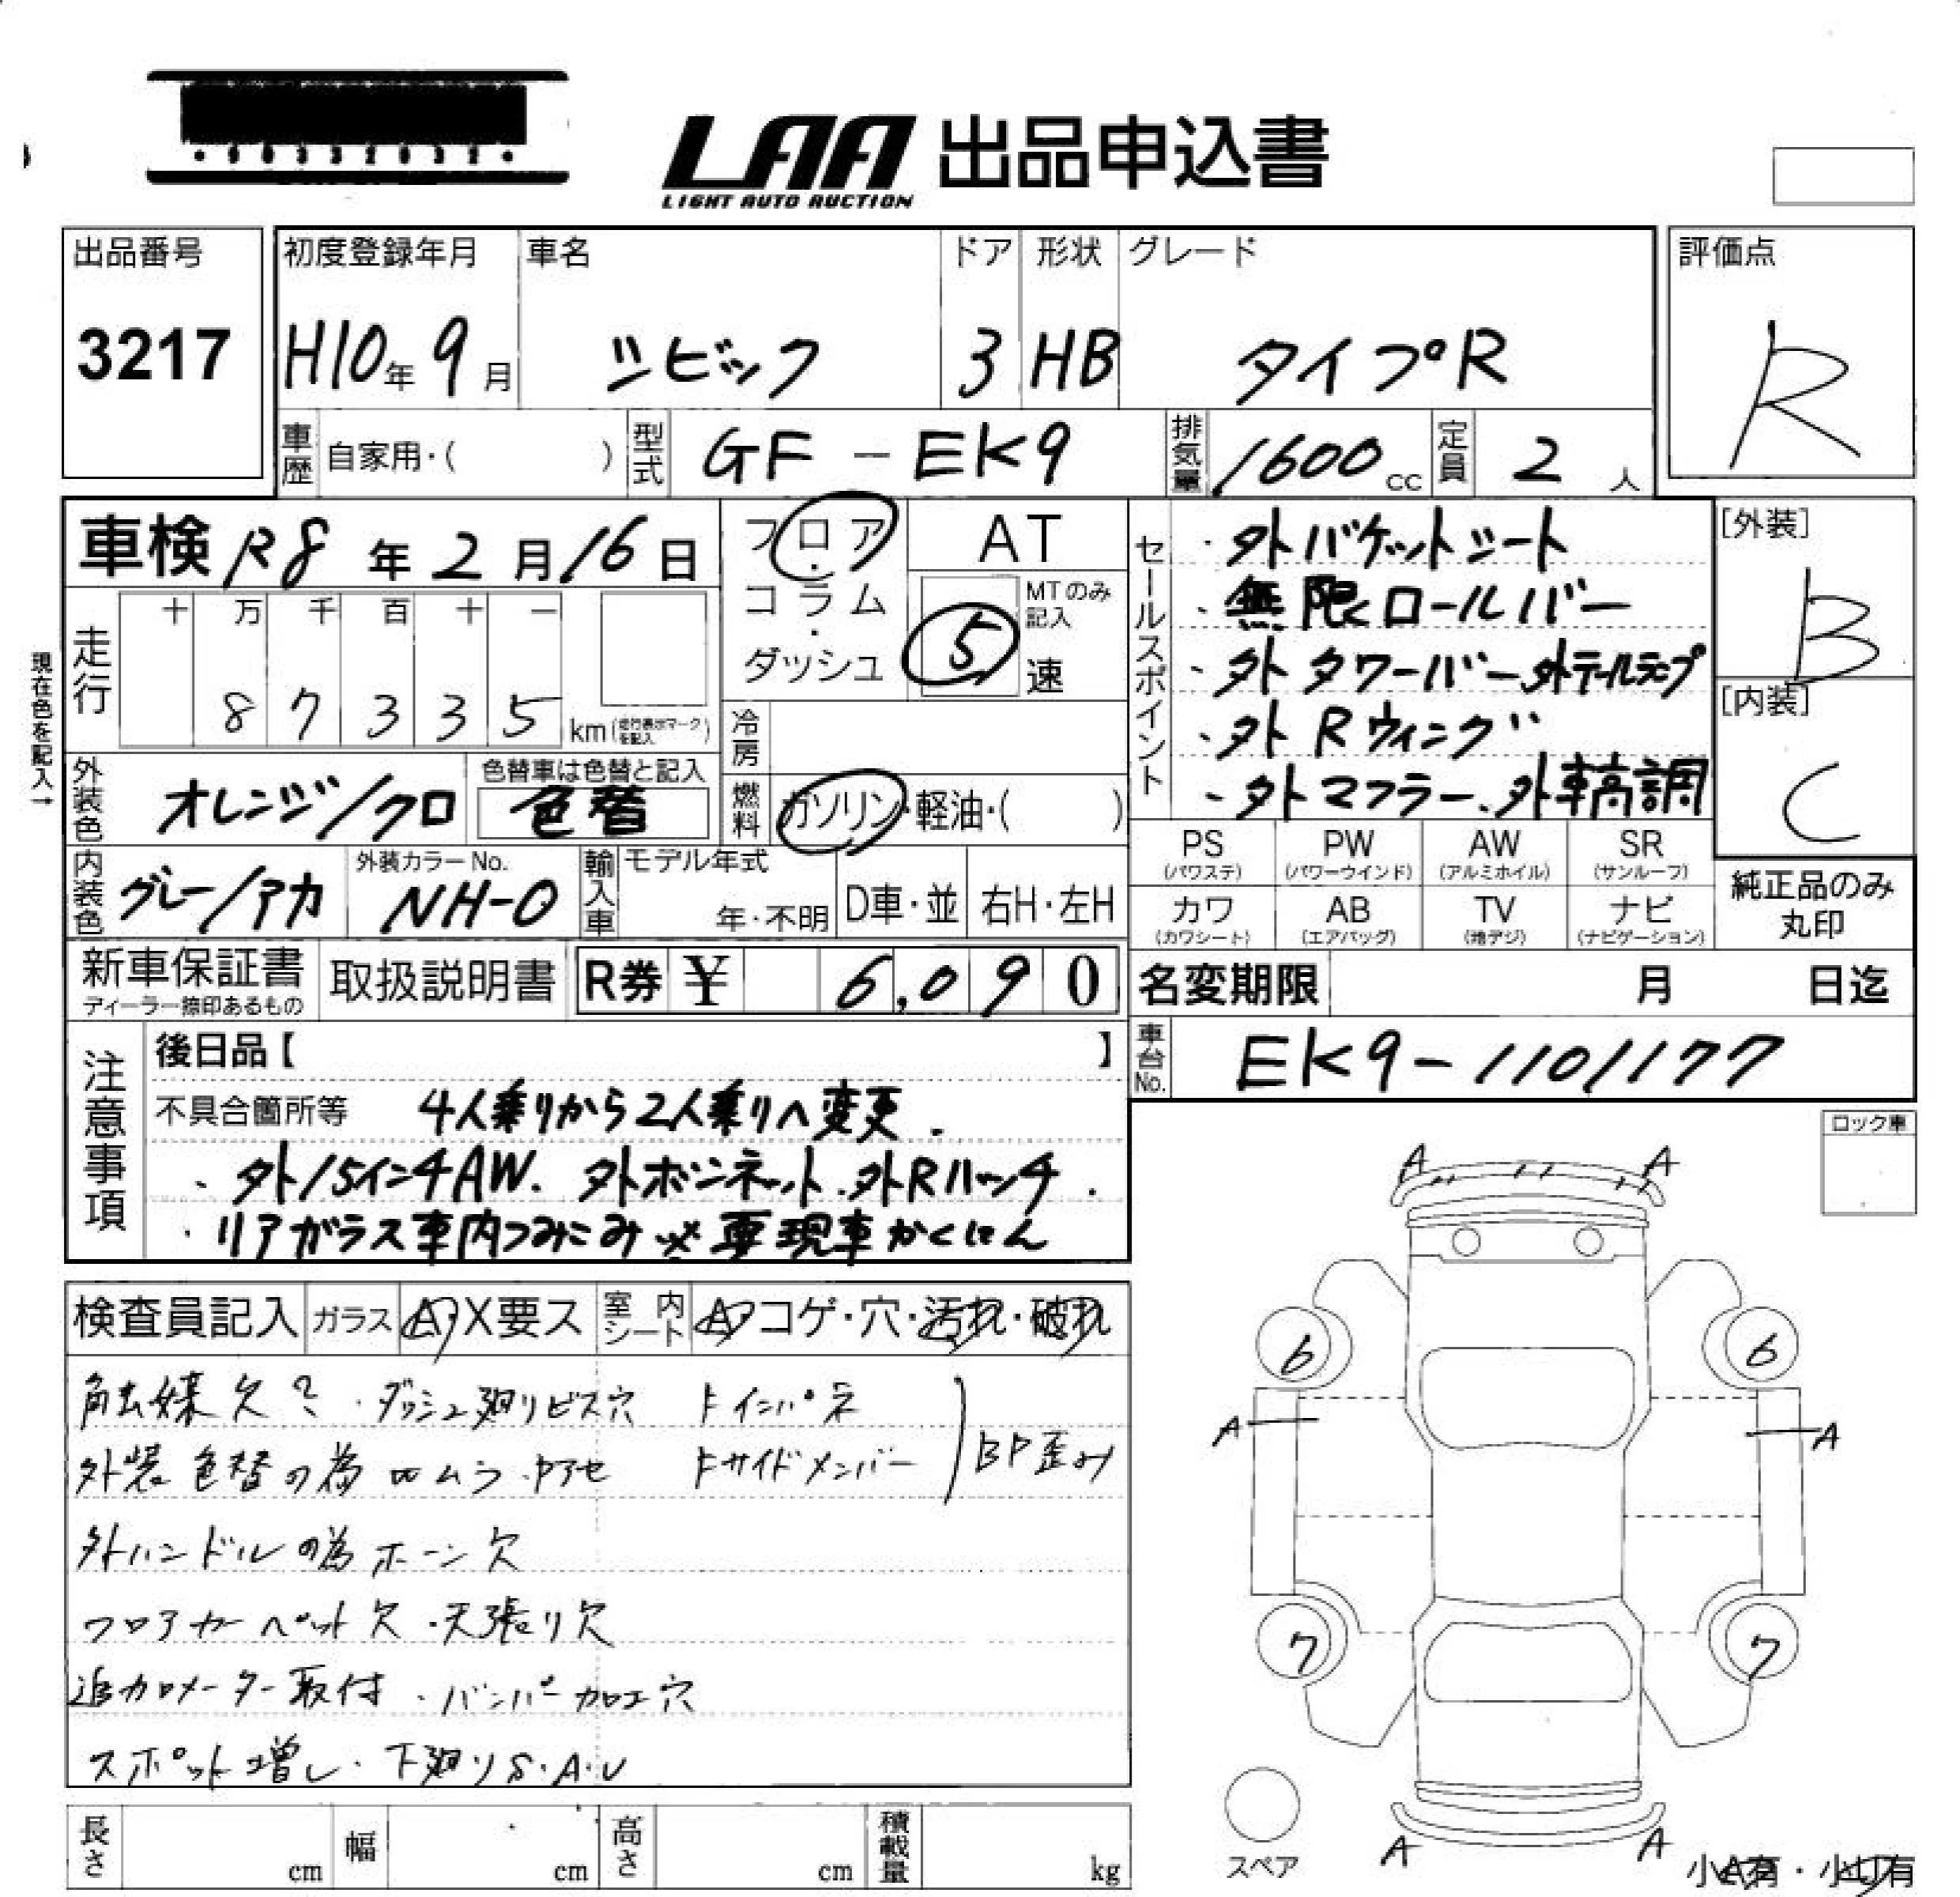 LAA 出品申込書
LIGHT AUTO AUCTION
出品番号 初度登録年月 車名 ドア 形状 グレード 評価点
3217 H10年 9月 シビック 3 HB タイプR R
車歴 自家用・( ) 型式 GF-EK9 排気量 1600cc 定員 2人
車検 R8年2月16日
フロア・コラム・ダッシュ
AT
MTのみ記入
5速
セールスポイント
・外バケットシート
・無限ロールバー
・外タワーバー、外テールランプ
・外Rウィング
・外マフラー、外車高調
[外装]
B
[内装]
C
現在色を記入→
走行 十 万 千 百 十 一
8 7 3 3 5 km(走行表示マークを記入)
冷房
外装色 オレンジ/クロ 色替車は色替と記入
色替
燃料 ガソリン・軽油・( )
内装色 グレー/アカ 外装カラーNo. NH-0
輸入車 モデル年式 年・不明 D車・並 右H・左H
PS (パワステ) PW (パワーウインド) AW (アルミホイル) SR (サンルーフ)
カワ (カワシート) AB (エアバッグ) TV (地デジ) ナビ (ナビゲーション)
純正品のみ丸印
新車保証書 ディーラー捺印あるもの 取扱説明書 R券 ¥ 6,090
名変期限 月 日迄
車台No. EK9-1101177
注意事項
後日品【 】
不具合箇所等 4人乗りから2人乗りへ変更.
、外15インチAW. 外ボンネット.外Rハッチ.
・リアガラス車内つみこみ※要現車かくにん
ロック車
検査員記入 ガラス A・X要ス 室内シート A・コゲ・穴・汚れ・破れ
欠?・ダッシュ廻りビス穴 トインパネ
外装色替の為 ムラ・ アセ トサイドメンバー BP歪み
外ハンドルの為ホーン欠
フロアカーペット欠・天張り欠
追加メーター取付・バンパー加工穴
スポット増し・下廻りS・A・U
A A
6 6
A A
7 7
スペア
A A
小A有・小U有
長さ cm 幅 cm 高さ cm 積載量 kg